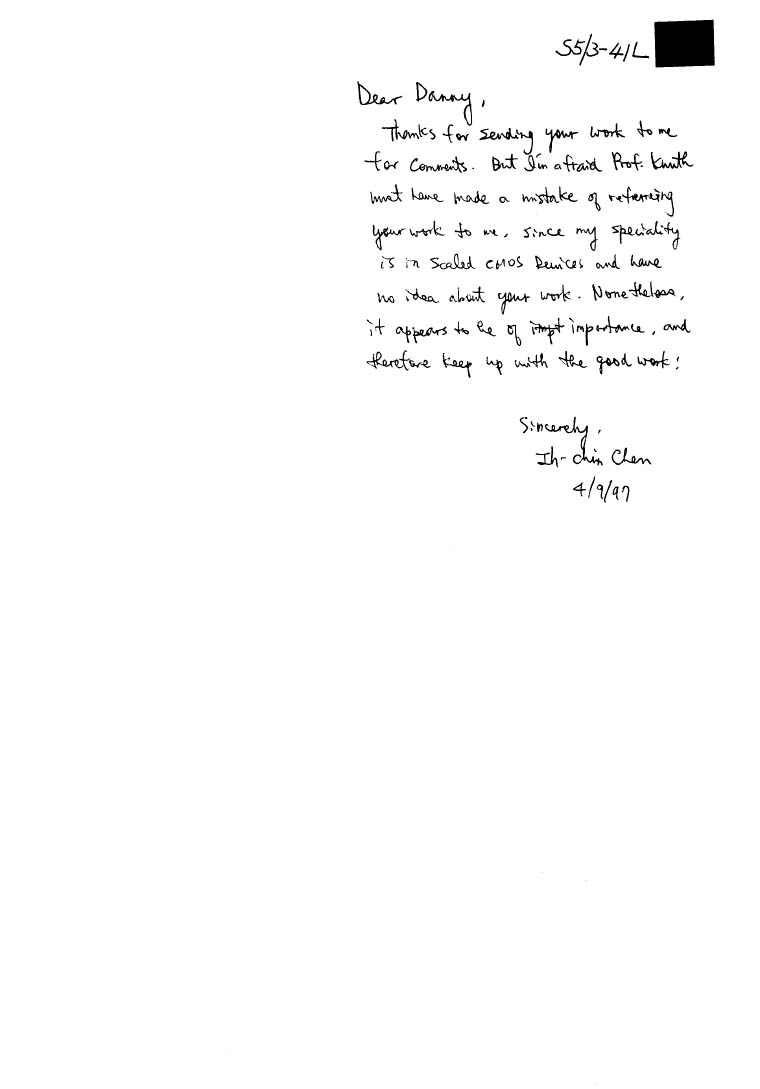 S5/3-41L
Dear Danny,
Thanks for sending your work to me
for comments. But I'm afraid Prof. Knuth
must have made a mistake of referreing
your work to me, since my speciality
is in Scaled CMOS Devices and have
no idea about your work. Nonetheless,
it appears to be of impt importance, and
therefore keep up with the good work!
Sincerely,
Ih-chin Chen
4/9/97